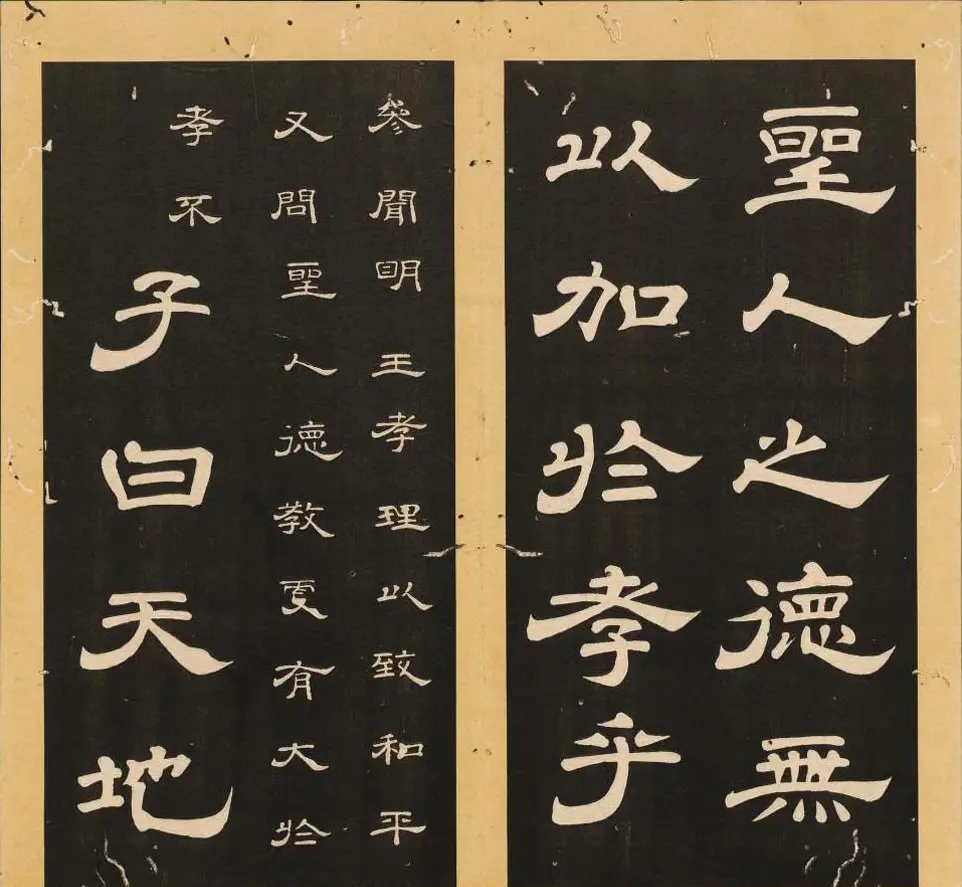 聖人之德無
以加於孝乎
參聞明王孝理以致和平
又問聖人德教更有大於
孝不
子曰天地